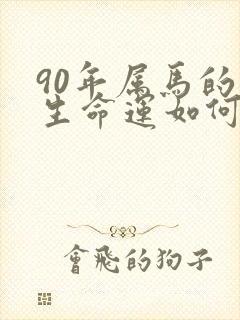 90年属马的
生命运如何
會飛的狗子